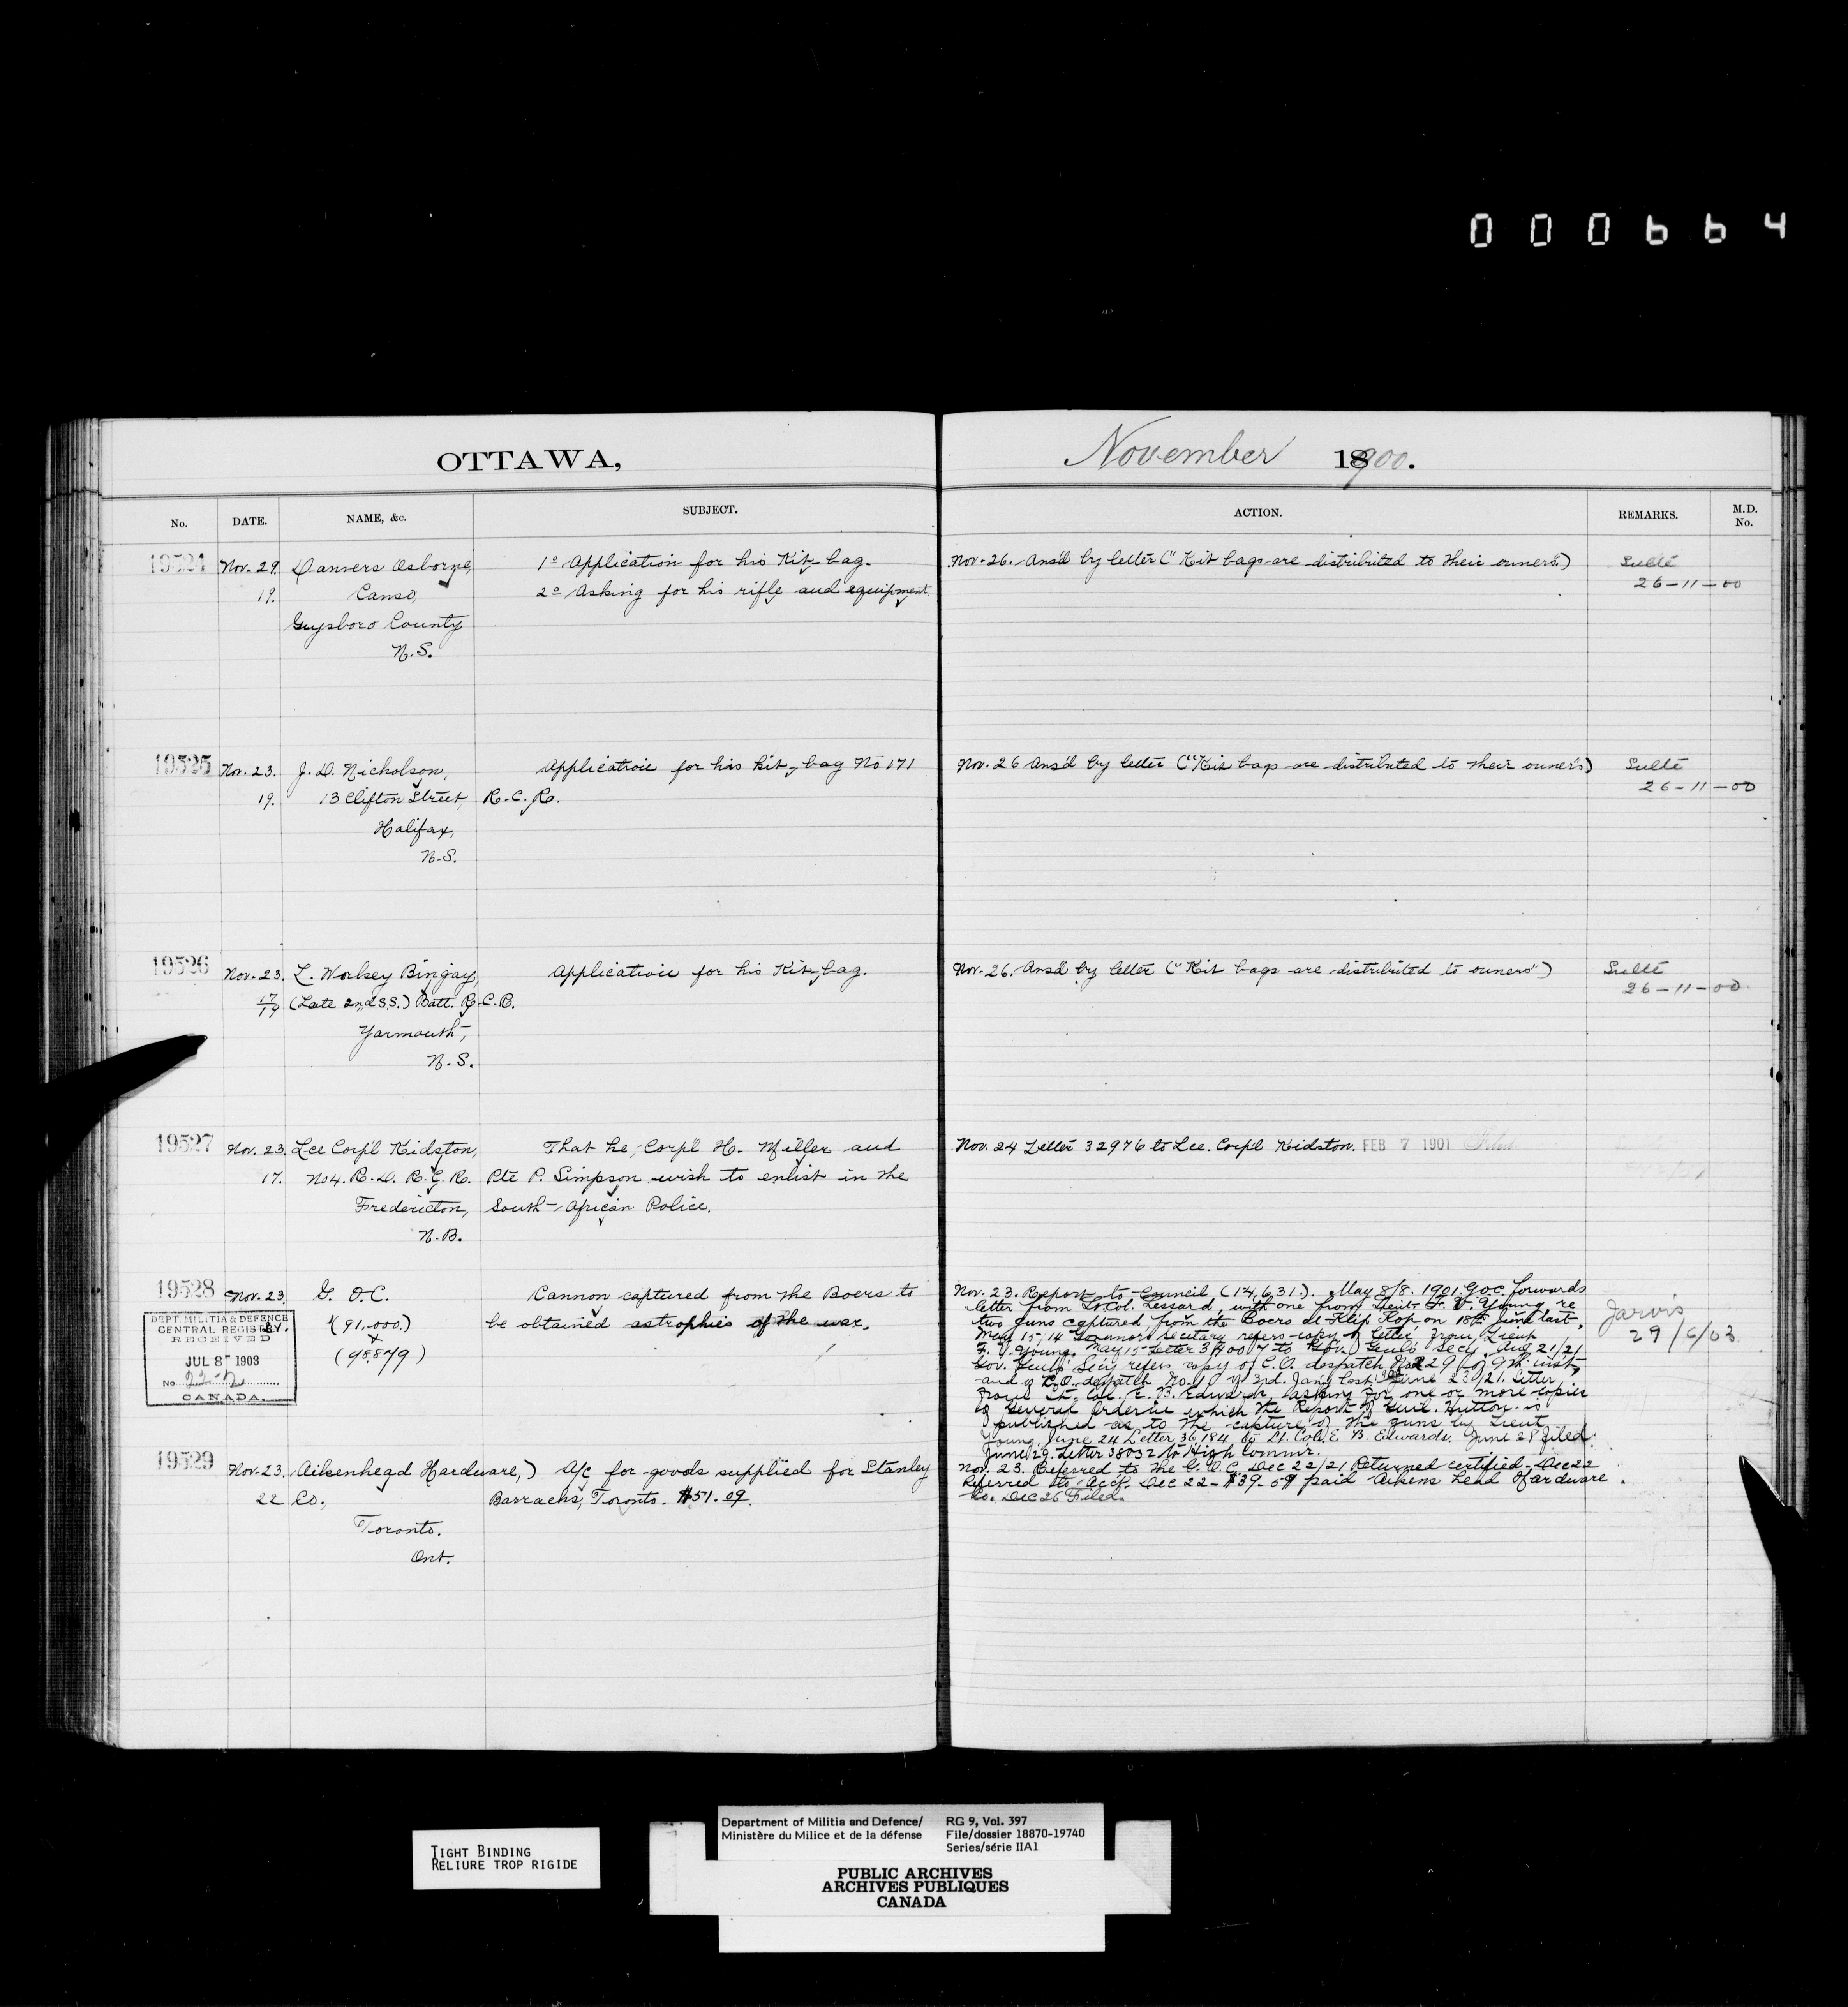 000664
OTTAWA,
November 1900.
No.
DATE.
NAME, &c.
SUBJECT.
ACTION.
REMARKS.
M.D.
No.
19524 Nov. 29. Danvers Osborne, 1º Application for his Kit-bag. Nov. 26. Ansd by letter ("Kit bags are distributed to their owners.") Sulte
19. Canso, 2º Asking for his rifle and equipment 26-11-00
Guysboro County
N.S.
19525 Nov. 23. J. D. Nicholson, Application for his Kit-bag No 171 Nov. 26 Ansd by letter ("Kit bags are distributed to their owners) Sulte
19. 13 Clifton Street, R.C.R. 26-11-00
Halifax,
N.S.
19526 Nov. 23. L. Worksey Bingay, Application for his Kit-bag. Nov. 26. Ansd by letter ("Kit bags are distributed to owners") Sulte
17/19 (Late 2nd S.S.) Batt. R.C.R. 26-11-00
Yarmouth,
N.S.
19527 Nov. 23. Lce Corpl Kidston, That he, Corpl H. Miller and Nov. 24 Letter 32976 to Lce. Corpl Kidston. FEB 7 1901 Filed
17. No 4. R.D. R.C.R. Pte P. Simpson wish to enlist in the
Fredericton, South-African Police.
N.B.
19528 Nov. 23. G. O. C. Cannon captured from the Boers to
(91.000.) be obtained as trophies of the war.
(98,879)
DEPT MILITIA & DEFENCE
CENTRAL REGISTRY.
RECEIVED
JUL 8 1903
No.
CANADA.
Nov. 23. Report to Council (14,631). May 8/8. 1901 G.O.C. forwards
letter from Lt. Col. Lessard, with one from Lieut. F. V. Young, re
two guns captured from the Boers at Klip Kop on 18th June last.
May 15/14 Governors secretary refers copy of letter from Lieut
F. V. Young. May 15 Letter 34007 to Gov. Genl's Secy. Aug 21/21
Gov. Genl's Secy refers copy of C.O. despatch No 229 of 9th inst,
and of C.O. despatch No. 10 of 3rd. Jany last. June 23/21. Letter
from Lt. Col. E. B. Edwards, asking for one or more copies
of General Order in which the Report of Genl. Hutton is
published as to the capture of the guns by Lieut
Young. June 24 Letter 36,184 to Lt. Col. E B. Edwards. June 28 filed.
June 29. Letter 38032 to High Commr.
Jarvis
29/6/03
19529 Nov. 23. Aikenhead Hardware, A/c for goods supplied for Stanley
22 Co., Barracks, Toronto. $51.09.
Toronto.
Ont.
Nov. 23. Referred to the G.O.C. Dec 22/21 Returned certified. Dec 22
Referred to Acct. Dec 22 - $39.09 paid Aikens head Hardware
Co. Dec 26 Filed.
TIGHT BINDING
RELIURE TROP RIGIDE
Department of Militia and Defence/
Ministère du Milice et de la défense
RG 9, Vol. 397
File/dossier 18870-19740
Series/série IIA1
PUBLIC ARCHIVES
ARCHIVES PUBLIQUES
CANADA